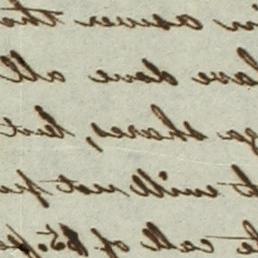 in answer tha
have done all
ga shares, but
it will not pu
he call of $5. pe